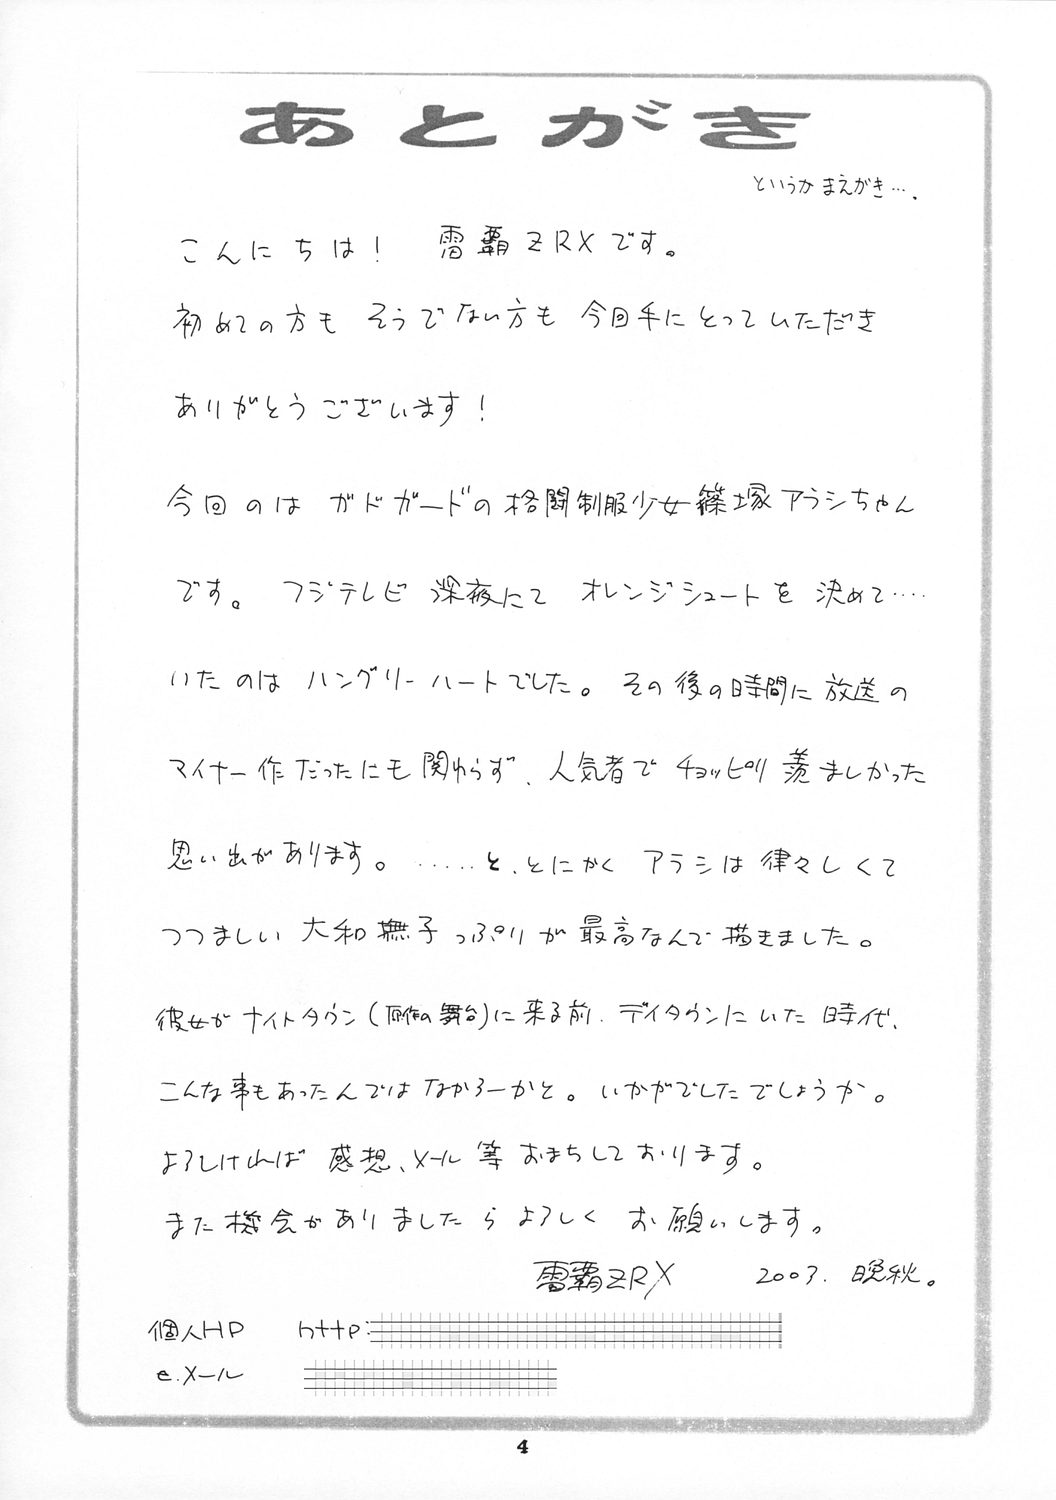 あとがき
というか まえがき….
こんにちは! 雷覇ZRXです。
初めての方も そうでない方も 今回手にとっていただき
ありがとうございます!
今回のは ガドガードの格闘制服少女篠塚アラシちゃん
です。 フジテレビ 深夜にて オレンジシュートを 決めて‥‥
いたのは ハングリーハートでした。 その後の時間に 放送の
マイナー作だったにも関わらず、人気者で チョッピリ 羨ましかった
思い出があります。 ‥‥‥と、とにかく アラシは 律々しくて
つつましい 大和撫子っぷりが 最高なんで描きました。
彼女が ナイトタウン(原作の舞台)に来る前、デイタウンにいた 時代、
こんな事もあったんではなかろーかと。いかがでしたでしょうか。
よろしければ 感想、メール等 おまちしております。
また機会がありましたら よろしく お願いします。
雷覇ZRX 2003. 晩秋。
個人HP http:
e.メール
4